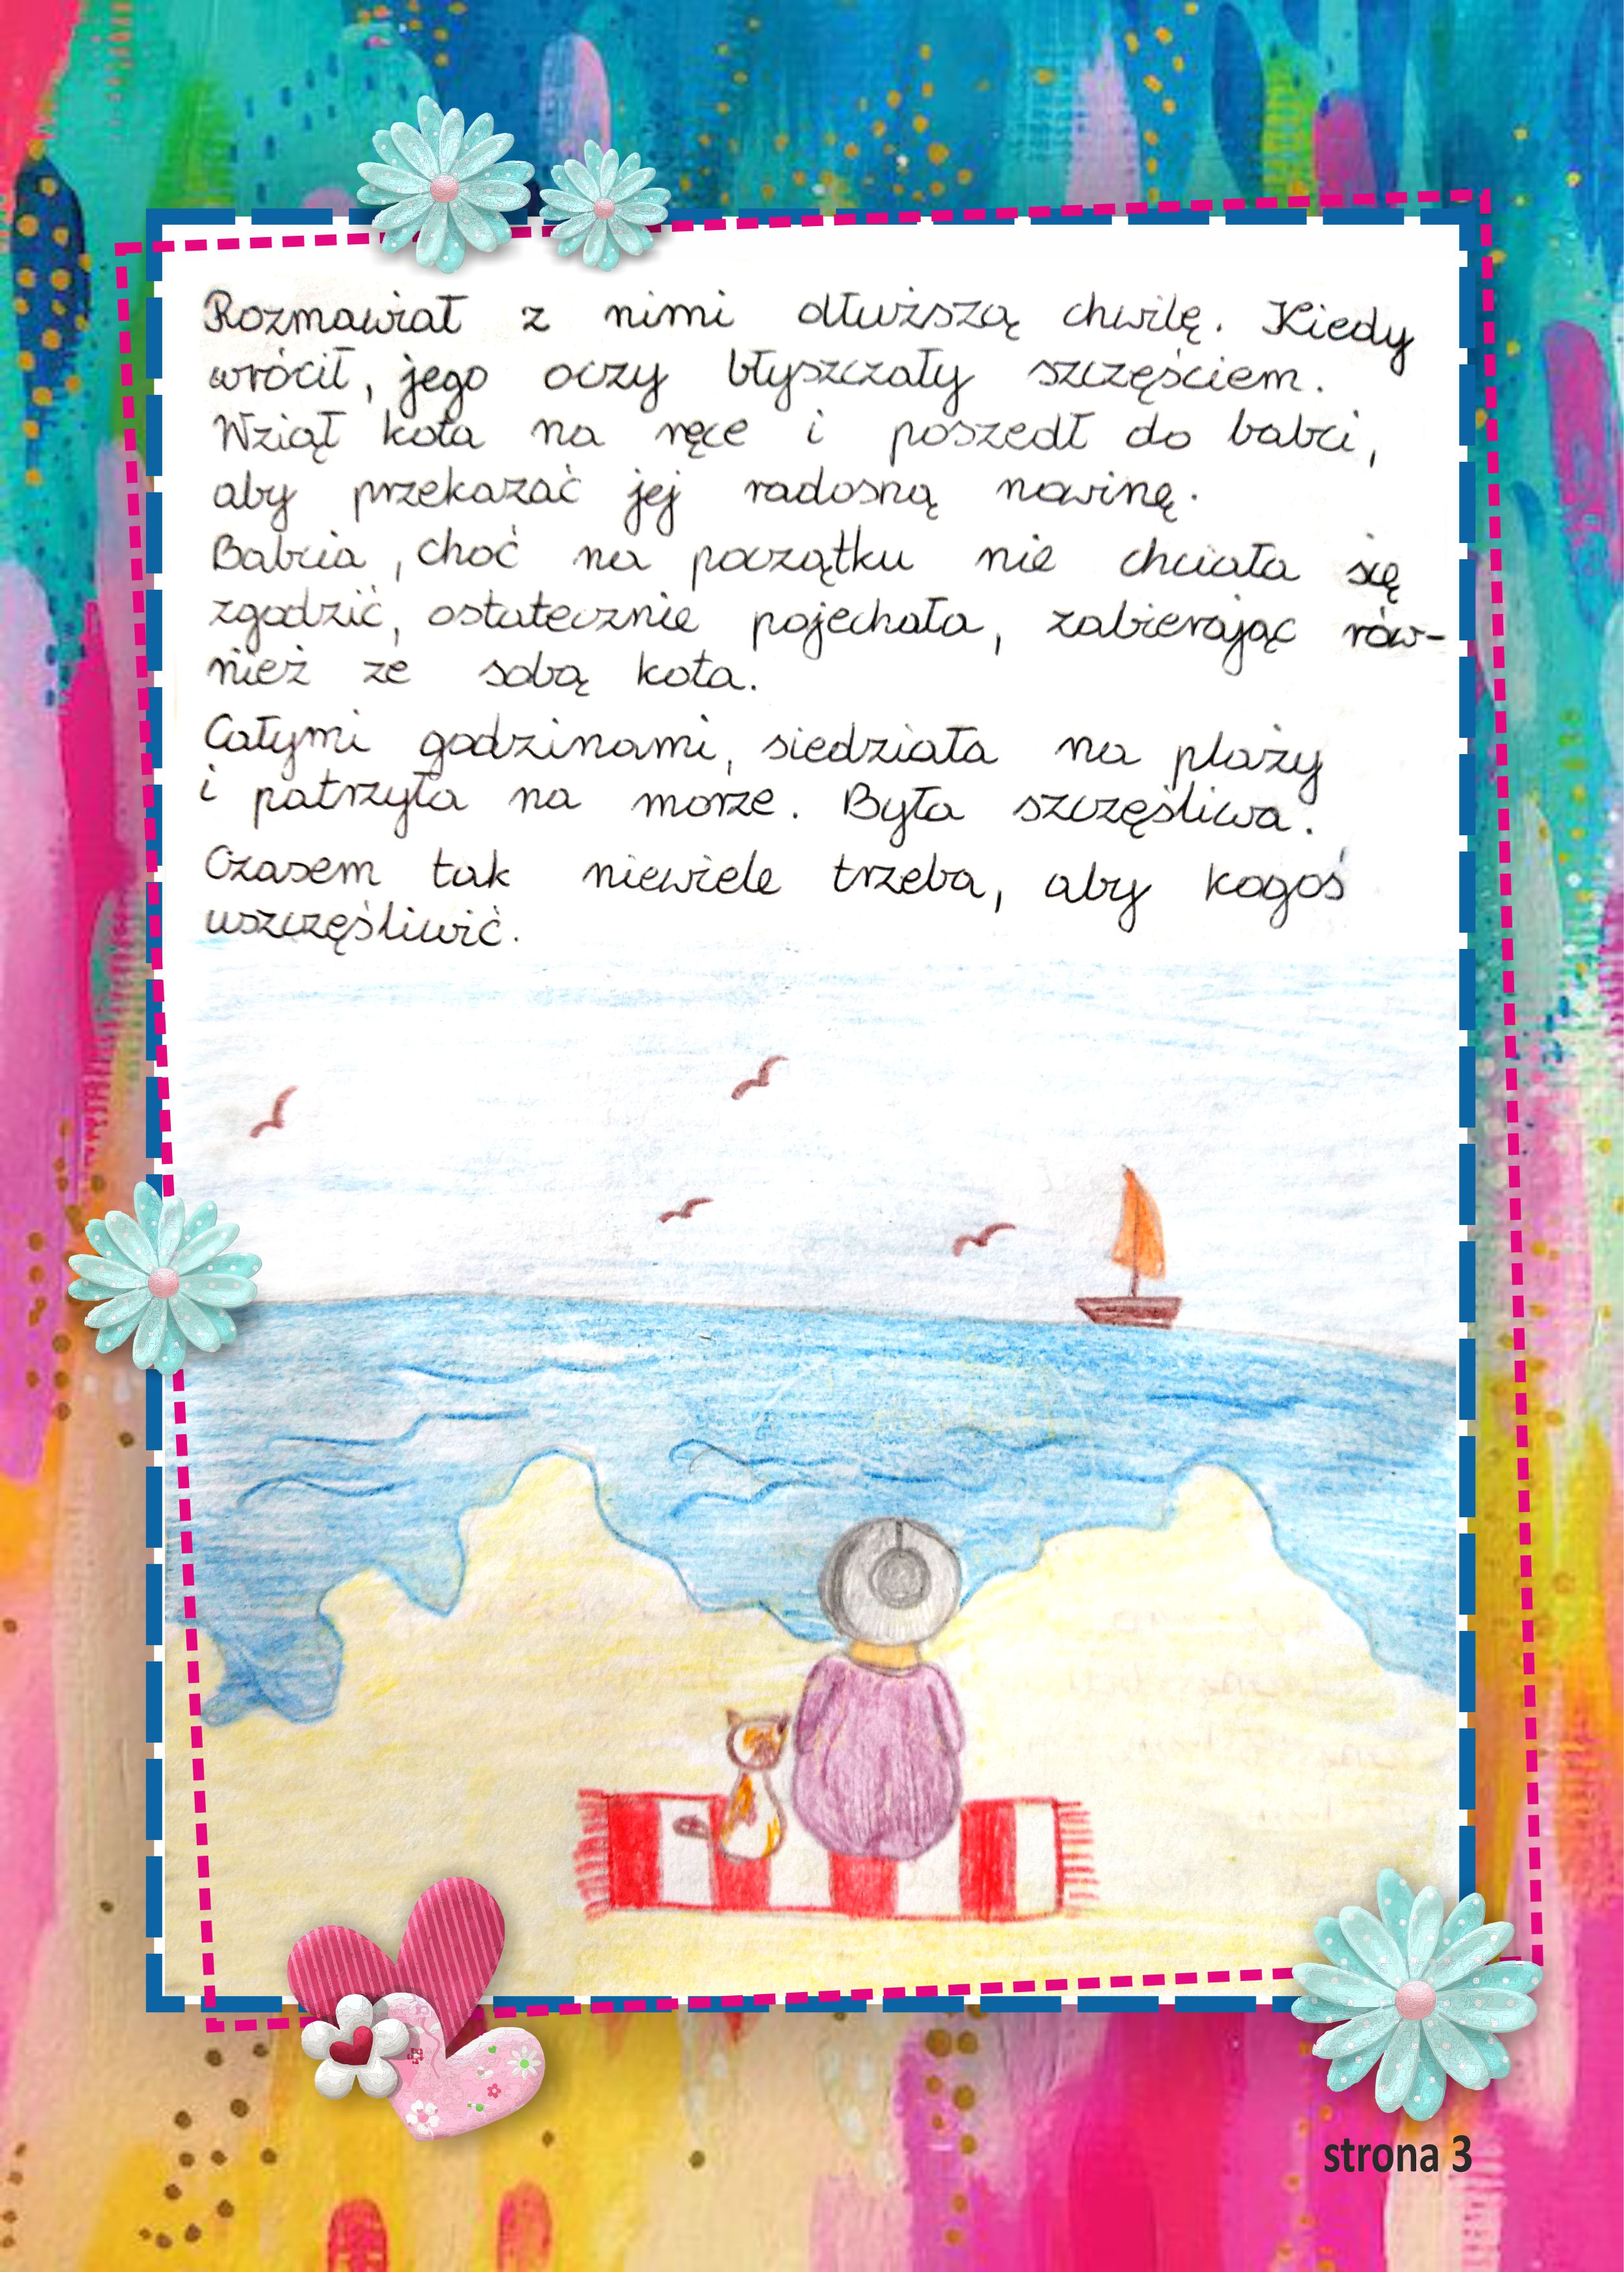 Rozmawiał z nimi dłuższą chwilę. Kiedy
wrócił, jego oczy błyszczały szczęściem.
Wziął kota na ręce i poszedł do babci,
aby przekazać jej radosną nowinę.
Babcia, choć na początku nie chciała się
zgodzić, ostatecznie pojechała, zabierając rów-
nież ze sobą kota.
Całymi godzinami, siedziała na plaży
i patrzyła na morze. Była szczęśliwa.
Czasem tak niewiele trzeba, aby kogoś
uszczęśliwić.
strona 3